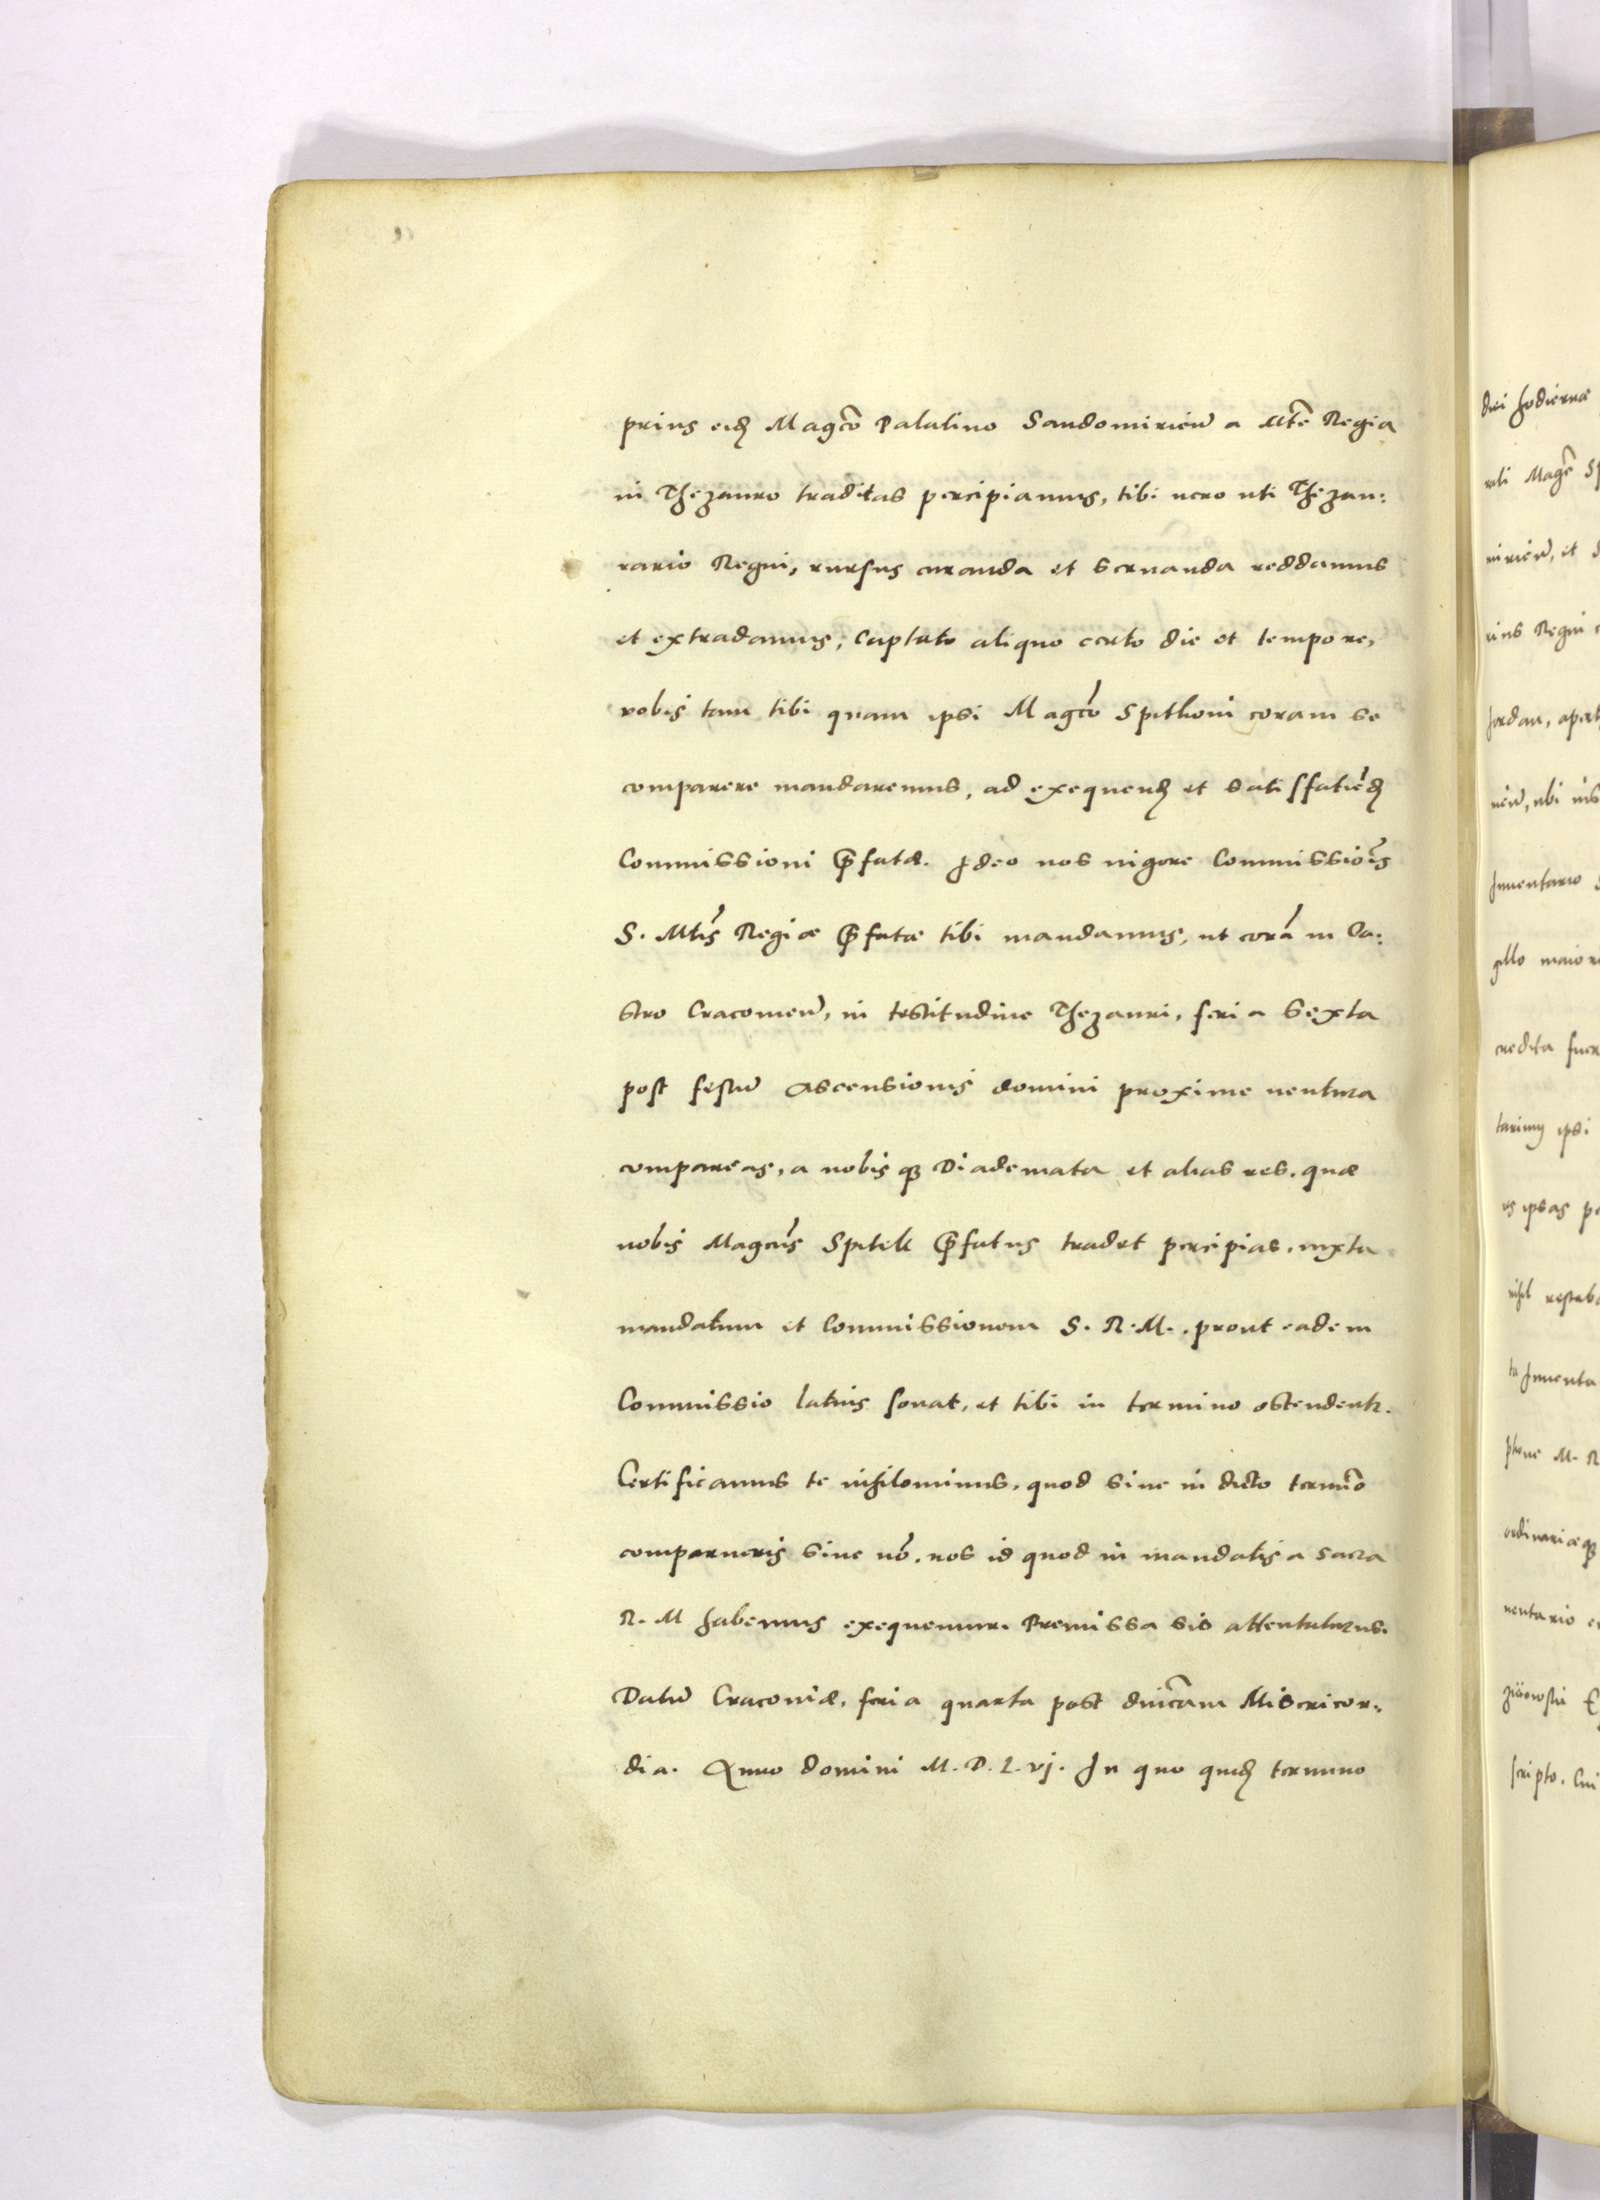 prius eidẽ Magcõ Palatino Sandomirieñ a Mtẽ Regia
in Thezauro traditas percipiamus, tibi uero uti Thezau:
rario Regni, rursus curanda et seruanda reddamus
et extradamus, Captato aliquo certo die et tempore,
vobis tam tibi quam ipsi Magcõ Spithoni coram se
comparere mandaremus, ad exequendũ et satisfatiẽdũ
Commissioni p̃fatæ. Ideo nos uigore Commissiõis
S. Mtis Regiæ p̃fatæ tibi mandamus, ut corã in Ca:
stro Cracouieñ, in testitudine Thezauri, feria sexta
post festũ Ascensionis domini proxime uentura
compareas, a nobisq3 Diademata et alias res, quæ
nobis Magcus Spitek p̃fatus tradet percipias, iuxta
mandatum et Commissionem S. R. M. prout eadem
Commissio latius sonat, et tibi in termino ostendetr.
Certificamus te nihilominus, quod siue in dicto termĩo
comparueris siue nõ, nos id quod in mandatis a sacra
R. M habemus exequemur. Premissa sis attentaturus.
Datũ Cracouiæ, feria quarta post dnicam Misericor:
dia. Anno domini M. D. L. vj. In quo quidẽ termino
dici hodiernæ
rati Magcẽ Sp
mirieñ, et
rius Regni
Jordan, apert
nieñ, ubi
Inuentario
gillo maiori
credita fuer
tarius ipsi
is ipsas p
nihil restab
ta Inuenta
ptõne M. R
ordinariæq3
uentario

scripto. Cui